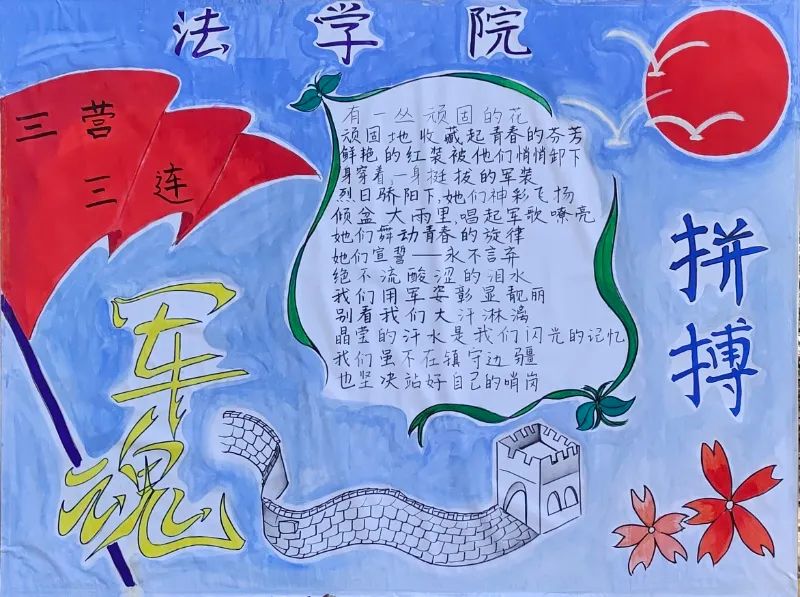 法学院
三营
三连
有一丛顽固的花
顽固地收藏起青春的芬芳
鲜艳的红装被他们悄悄卸下
身穿着一身挺拔的军装
烈日骄阳下,她们神彩飞扬
倾盆大雨里,唱起军歌嘹亮
她们舞动青春的旋律
她们宣誓——永不言弃
绝不流酸涩的泪水
我们用军姿彰显靓丽
别看我们大汗淋漓
晶莹的汗水是我们闪光的记忆
我们虽不在镇守边疆
也坚决站好自己的哨岗
军魂
拼搏